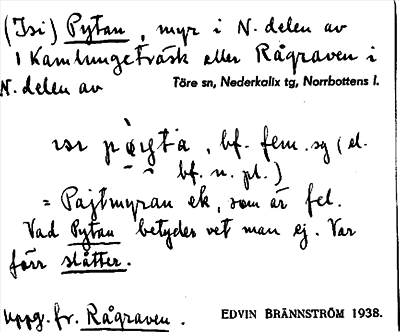 (Isi) Pytan, myr i N. delen av
Kamlungeträsk eller Rågraven i
N. delen av Töre sn, Nederkalix tg, Norrbottens l.
bf. fem. sg (el.
bf. n. pl.)
= Pajtmyran ek, som är fel.
Vad Pytan betyder vet man ej. Var
förr slåtter.
Uppg. fr. Rågraven. EDVIN BRÄNNSTRÖM 1938.